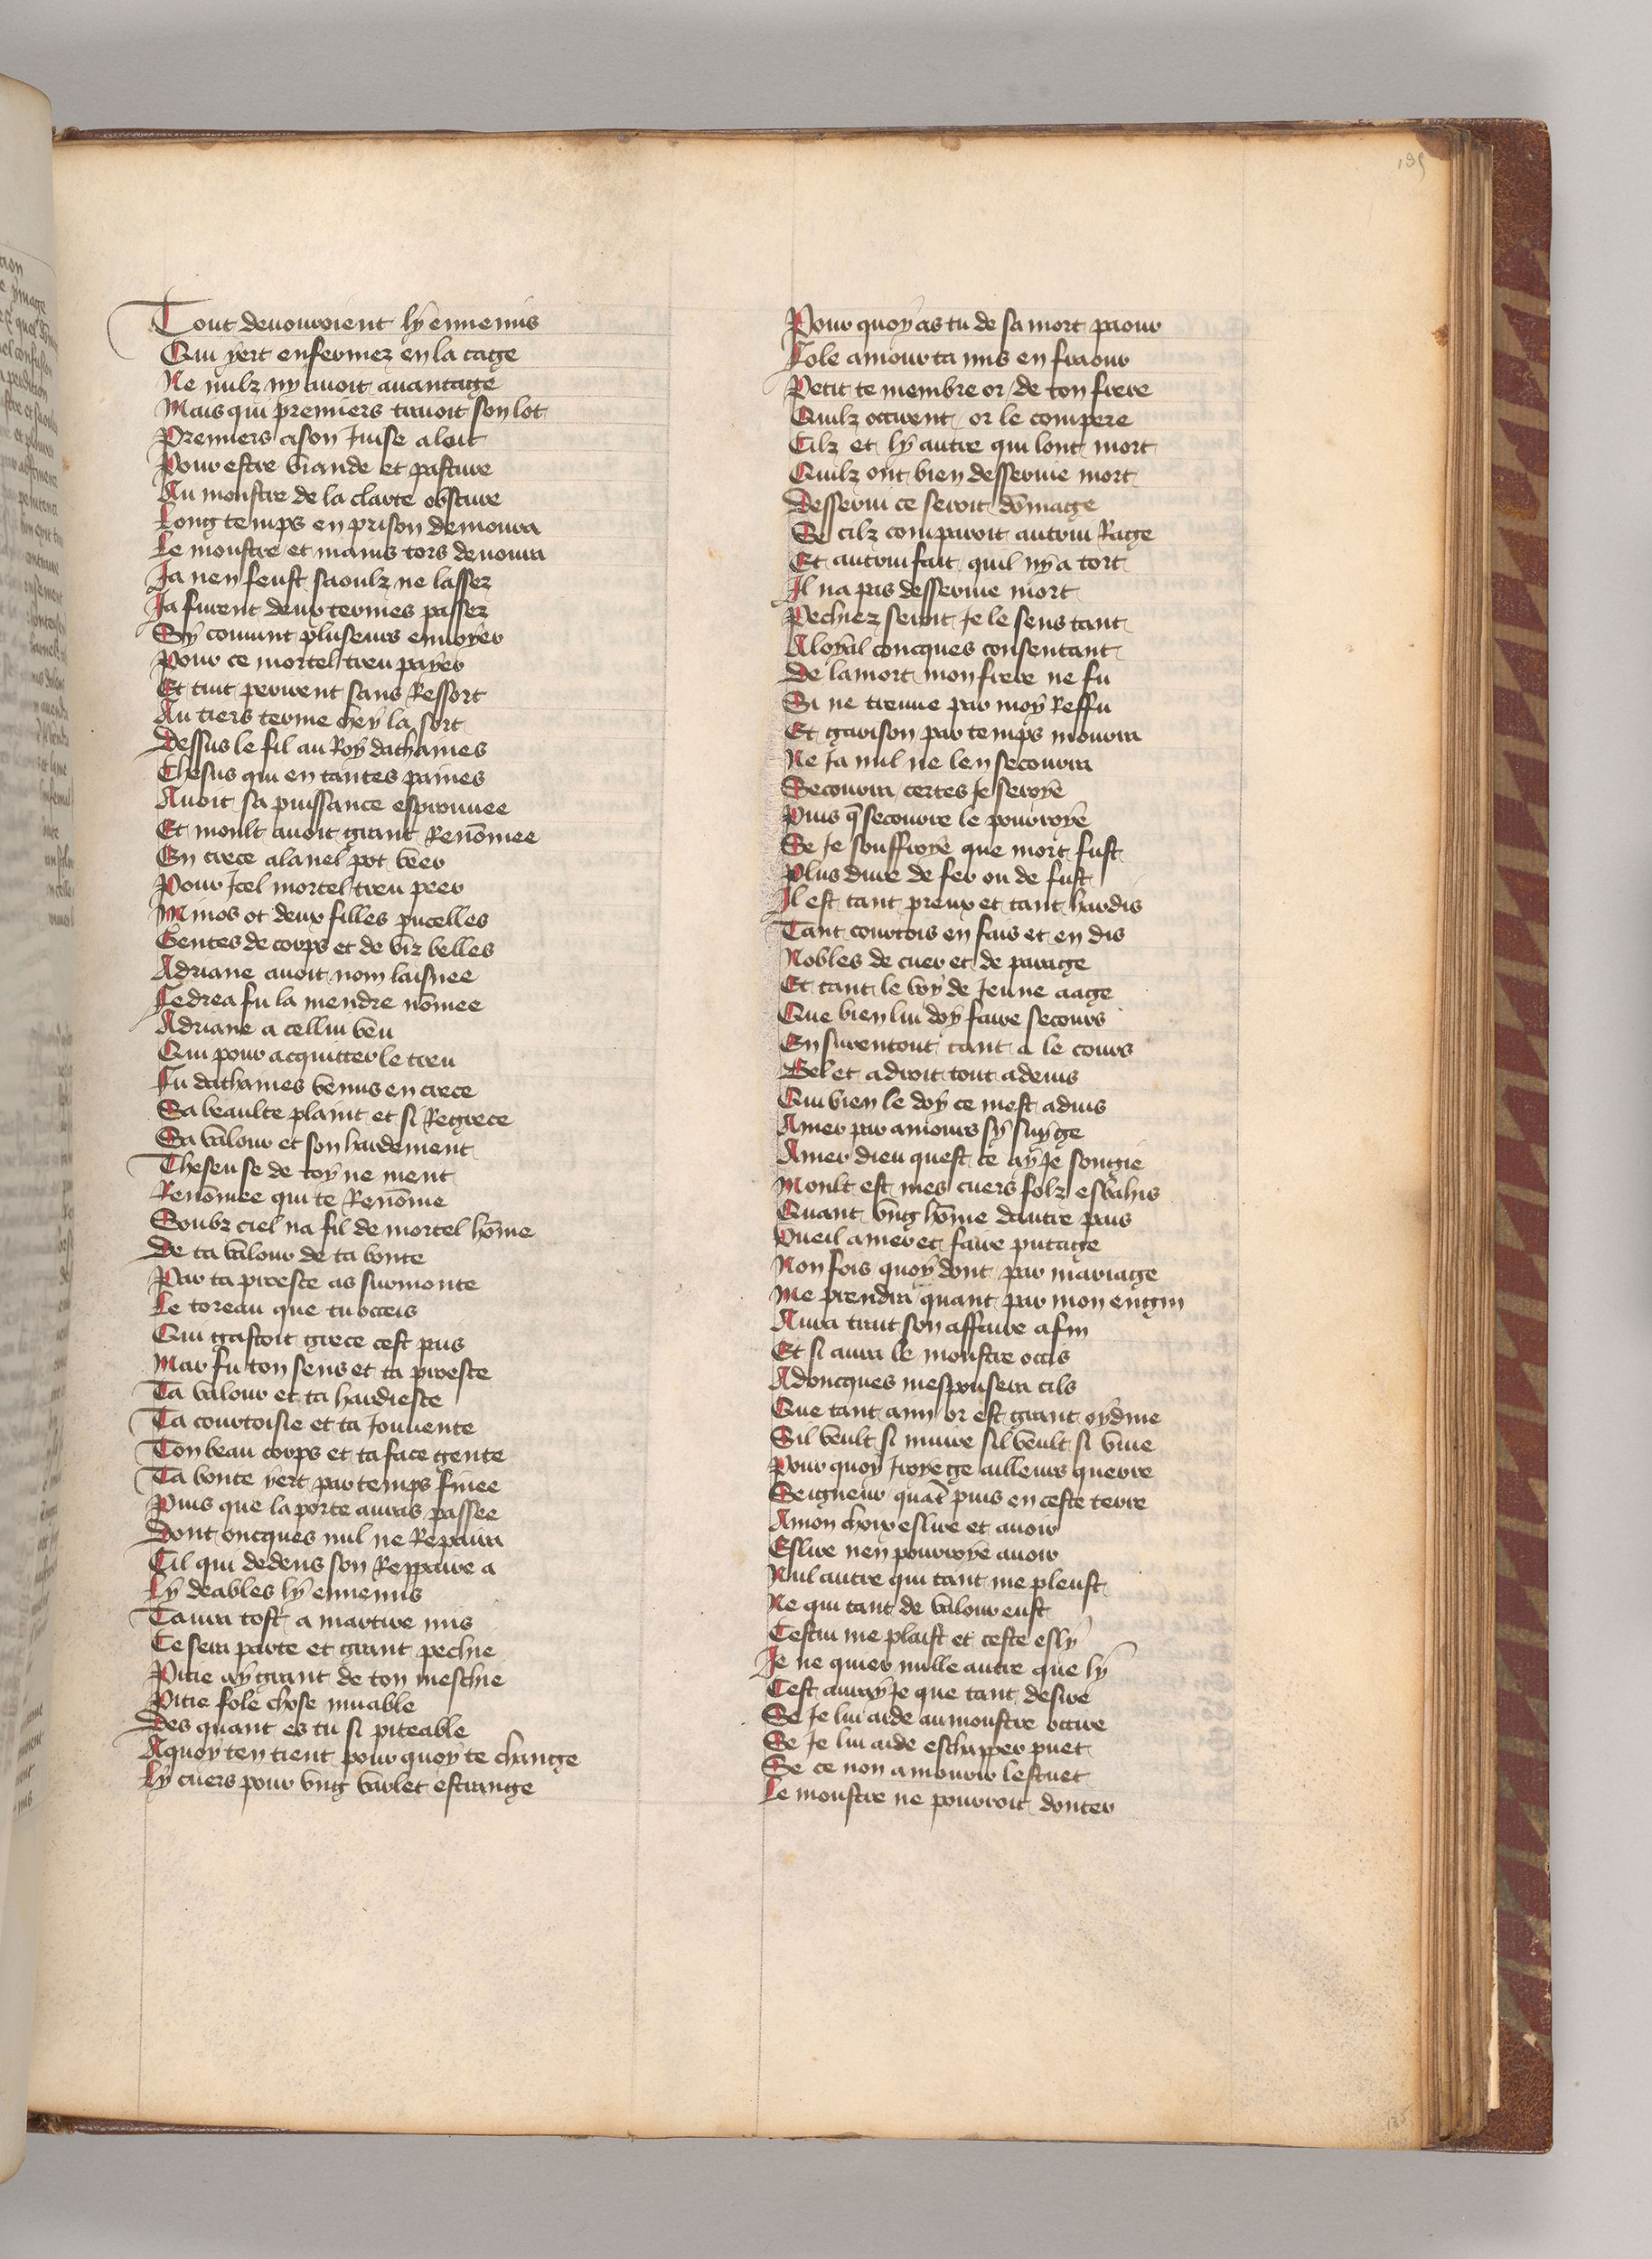 195
Tout devouroient ly ennemis
Qui yert enfermez en la cage
Ne nulz ny avoit avantage
Mais qui premiers travoit son lot
Premiers a son Juise aloit
Pour estre viande et pasture
Au monstre de la clarte obscure
Long temps en prison demoura
Le monstre et mains tors devoura
Ja nen feust saoulz ne lassez
Ja furent deux termes passez
Sy convint pluseurs envoyer
Pour ce mortel treu payer
Et tuit perirent sans Ressort
Au tiers terme chey la sort
Dessus le fil au Roy dathaines
Theseus qui en tantes paines
Avoit sa puissance esprouvee
Et moult avoit grant Renōmee
En crece ala nel pot veer
Pour Jcel mortel treu peer
Minos ot deux filles pucelles
Gentes de corps et de viz belles
Adriane avoit nom laisnee
Fedrea fu la mendre nōmee
Adriane a cellui veu
Qui pour acquitter le treu
Fu dathaines venus en crece
Sa beaulte plaint et si Regrece
Sa valour et son hardement
Theseu se de toy ne ment
Renōmee qui te Renōme
Soubz ciel na fil de mortel hōme
De ta valour de ta bonte
Par ta proesce as surmonte
Le toreau que tu occeis
Qui gastoit grece cest pais
Mar fu ton sens et ta proesce
Ta valour et ta hardiesce
Ta courtoisie et ta Jouvente
Ton beau corps et ta face gente
Ta bonte yert par temps finee
Puis que la porte auras passee
Dont oncques nul ne Repaira
Cil qui dedens son Reppaire a
Ly deables ly ennemis
Taura tost a martire mis
Ce sera perte et grant pechie
Pitie ay grant de ton meschie
Pitie fole chose muable
Des quant es tu si piteable
A quoy ten tient pour quoy te change
Ly cuers pour ung varlet estrange
Pour quoy as tu de sa mort paour
Fole amour ta mis en fraour
Petit te membre or de ton frere
Quilz occirent or le compere
Cilz et ly autre qui lont mort
Quilz ont bien desservie mort
Desservi ce seroit dōmage
Se cilz comparoit autrui Rage
Et autrui fait quil ny a tort
Il na pas desservie mort
Pechiez seroit Je le sens tant
A loyal concques consentant
De la mort mon frere ne fu
Si ne treuve par moy Reffu
Et garison par temps mourra
Ne Ja nul ne len secourra
Secourra certes Je seroye
Puis q̄ secourre le pourroye
Se Je souffroye que mort fust
Plus dure de fer ou de fust
Il est tant preux et tant hardis
Tant courtois en fais et en dis
Nobles de cuer et de parage
Et tant le voy de Jeune aage
Que bien lui doy faire secours
En surentout tant a le cours
Bel et adroit tout a devis
Qui bien le doy ce mest advis
Amer par amours sy suy ge
Amer dieu quest ce ay Je songie
Moult est mes cuers folz esbahis
Quant ung hōme dautre pais
Vueil amer et faire putage
Non fois quoy dont par mariage
Me prendra quant par mon engin
Aura trait son affaire a fin
Et si aura le monstre occis
Adoncques mespousera cils
Que tant aim or est grant oydive
Sil veult si muire sil veult si vive
Pour quoy Jroye ge ailleurs querre
Seigneur quāt puis en ceste terre
A mon chois eslire et avoir
Eslire nen pourroye avoir
Nul autre qui tant me pleust
Ne qui tant de valour eust
Cestui me plaist et ceste esly
Je ne quier nulle autre que ly
Cest auray Je que tant desire
Se Je lui aide au monstre occire
Se Je lui aide eschapper puet
Se ce non a mourir lestuet
Le monstre ne pourroit donter
195